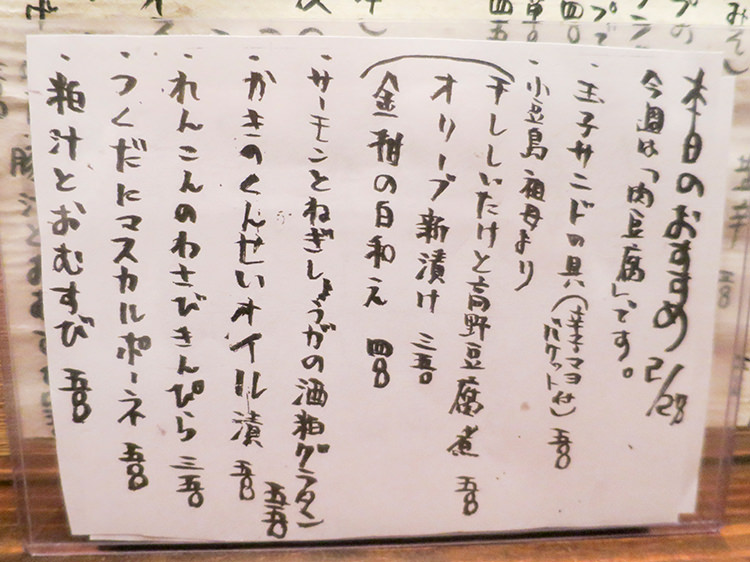 本日のおすすめ 2/28
今週は「肉豆腐」です。
・玉子サンドの具(辛子マヨ バケット付) 五〇
・小豆島祖母より
干ししいたけと高野豆腐煮 五〇
オリーブ新漬け 三五〇
金柑の白和え 四〇
・サーモンとねぎしょうがの酒粕グラタン 五五〇
・かきのくんせいオイル漬 五〇
・れんこんのわさびきんぴら 三五〇
・つくだにマスカルポーネ 五〇
・粕汁とおむすび 五〇